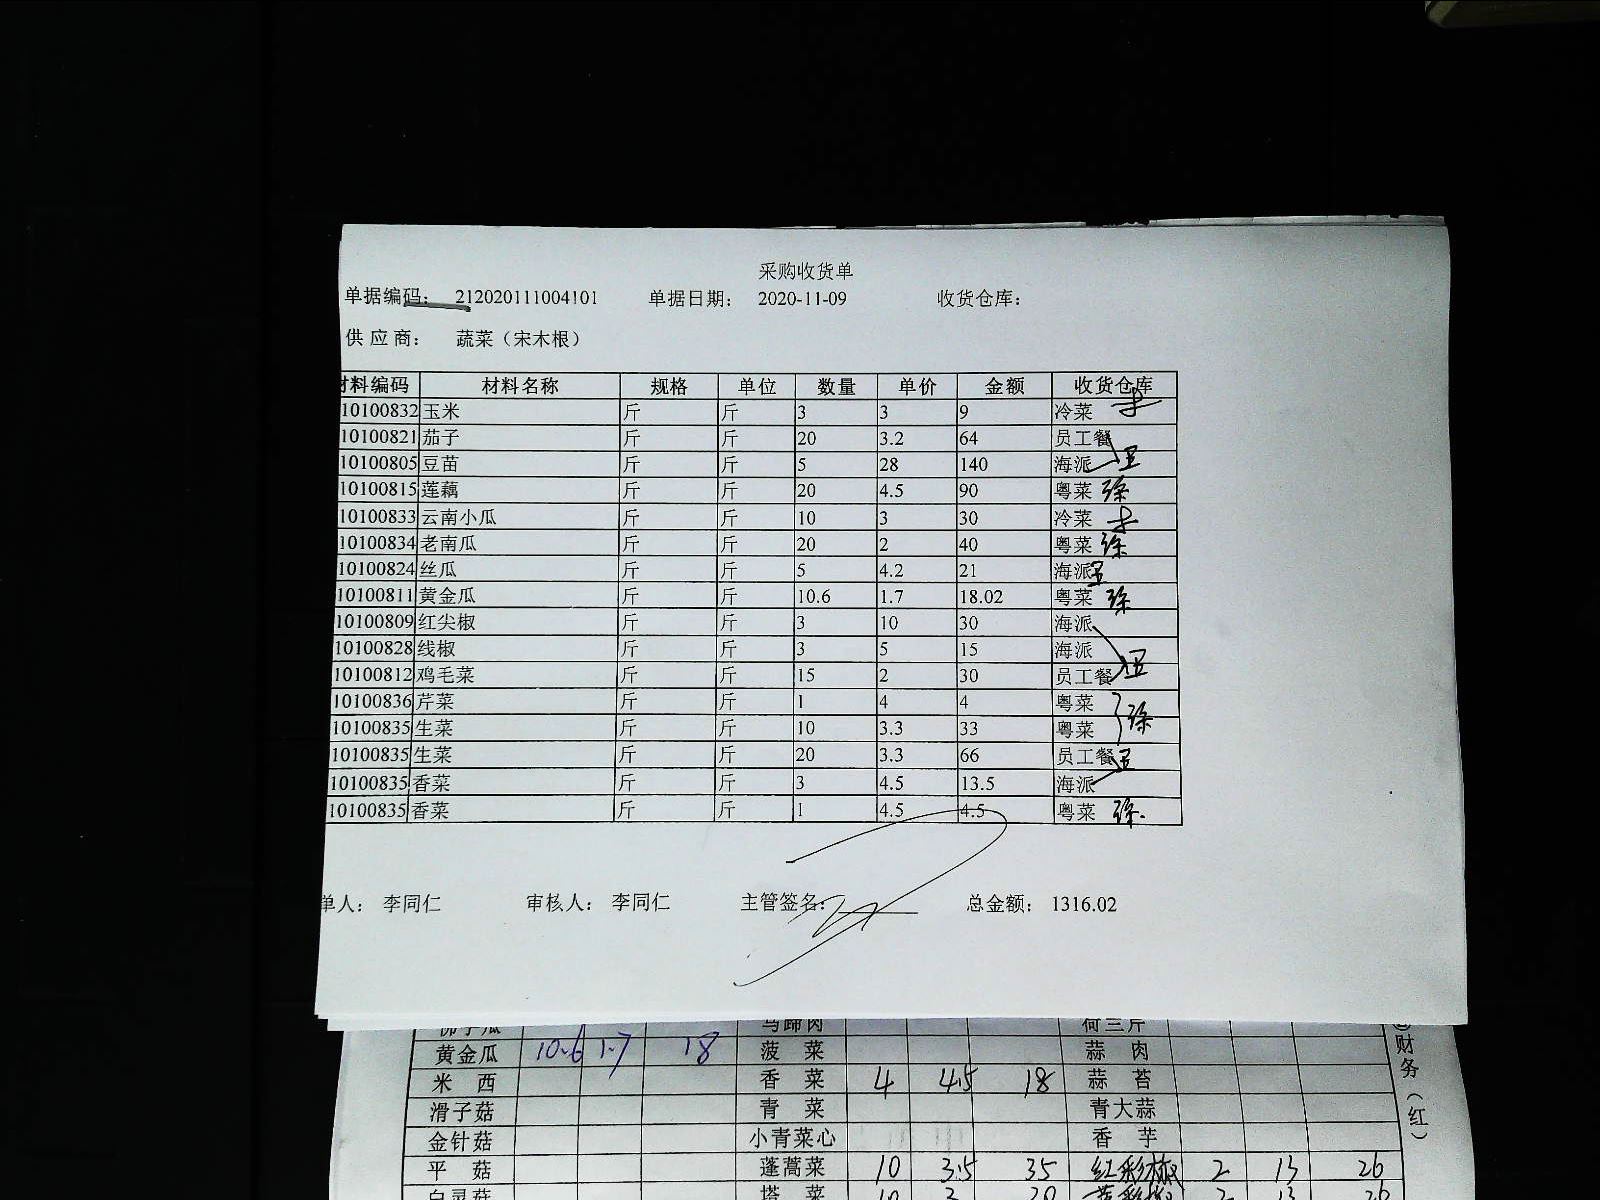 采购收货单
单据编码： 212020111004101 单据日期： 2020-11-09 收货仓库：
供应商： 蔬菜（宋木根）
材料编码 材料名称 规格 单位 数量 单价 金额 收货仓库
10100832 玉米 斤 斤 3 3 9 冷菜
10100821 茄子 斤 斤 20 3.2 64 员工餐
10100805 豆苗 斤 斤 5 28 140 海派
10100815 莲藕 斤 斤 20 4.5 90 粤菜 徐
10100833 云南小瓜 斤 斤 10 3 30 冷菜
10100834 老南瓜 斤 斤 20 2 40 粤菜 徐
10100824 丝瓜 斤 斤 5 4.2 21 海派
10100811 黄金瓜 斤 斤 10.6 1.7 18.02 粤菜 徐
10100809 红尖椒 斤 斤 3 10 30 海派
10100828 线椒 斤 斤 3 5 15 海派
10100812 鸡毛菜 斤 斤 15 2 30 员工餐
10100836 芹菜 斤 斤 1 4 4 粤菜 徐
10100835 生菜 斤 斤 10 3.3 33 粤菜
10100835 生菜 斤 斤 20 3.3 66 员工餐
10100835 香菜 斤 斤 3 4.5 13.5 海派
10100835 香菜 斤 斤 1 4.5 4.5 粤菜 徐
单人： 李同仁 审核人： 李同仁 主管签名： 总金额： 1316.02
黄金瓜 10.6 1.7 18 菠菜 蒜肉
米西 香菜 4 4.5 18 蒜苔
滑子菇 青菜 青大蒜
金针菇 小青菜心 香芋
平菇 蓬蒿菜 10 3.5 35 红彩椒 2 13 26
财务（红）